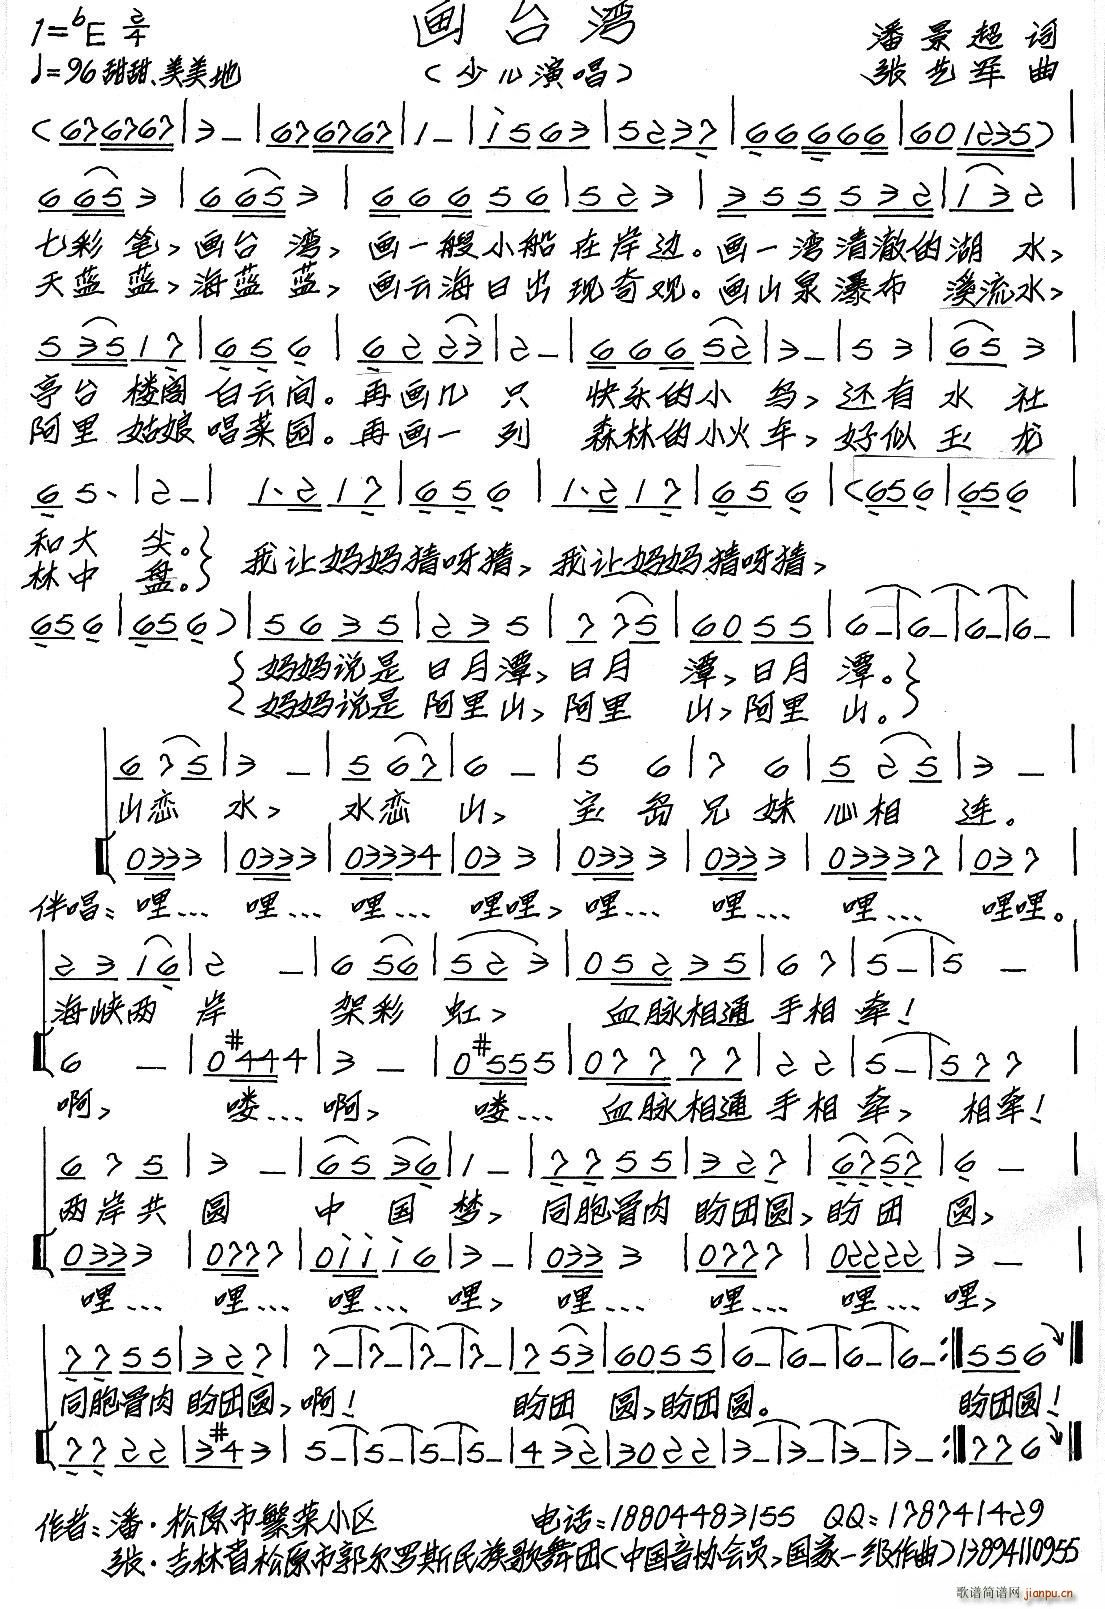 画台湾
1=bE 2/4
潘景超 词
♩=96 甜甜、美美地
(少儿演唱)
张艺军 曲
(676767|3–|676767|1–|i563|5237|66666|601235)|
6653|6653|66656|523|355532|132|
七彩笔,画台湾,画一艘小船在岸边。画一湾清澈的湖水,
天蓝蓝,海蓝蓝,画云海日出现奇观。画山泉瀑布 溪流水,
53517|656|6223|2–|66652|3–|53|653|
亭台楼阁白云间。再画几只 快乐的小鸟,还有水社
阿里姑娘唱菜园。再画一列 森林的小火车,好似玉龙
65·|2–|1·217|656|1·217|656|(656|656|
和大尖。
林中盘。
我让妈妈猜呀猜,我让妈妈猜呀猜,
656|656)|5635|235|775|6055|6–|6–|6–|6–|
妈妈说是日月潭,日月潭,日月潭。
妈妈说是阿里山,阿里山,阿里山。
675|3–|567|6–|56|76|525|3–|
山恋水,水恋山,宝岛兄妹心相连。
0333|0333|03334|033|0333|0333|03337|037|
伴唱:哩… 哩… 哩… 哩哩,哩… 哩… 哩… 哩哩。
2316|2–|656|523|05235|67|5–|5–|
海峡两岸 架彩虹, 血脉相通手相牵!
6–|0#444|3–|0#555|07777|22|5–|577|
啊, 喽…啊, 喽… 血脉相通手相牵, 相牵!
675|3–|6536|1–|7755|327|6757|6–
两岸共圆 中国梦,同胞骨肉盼团圆,盼团圆,
0333|0777|0iii6|3–|0333|0777|02222|3–|
哩… 哩… 哩… 哩,哩… 哩… 哩… 哩,
7755|327|7–|7–|7–|7–|753|6055|6–|6–|6–|6–:‖556‖
同胞骨肉盼团圆,啊! 盼团圆,盼团圆。 盼团圆!
7722|3#43|5–|5–|5–|5–|432|3022|3–|3–|3–|3–:‖776‖
作者:潘·松原市繁荣小区 电话:18804483155 QQ:178741429
张·吉林省松原市郭尔罗斯民族歌舞团(中国音协会员,国家一级作曲)13894110955
歌谱简谱网
jianpu.cn